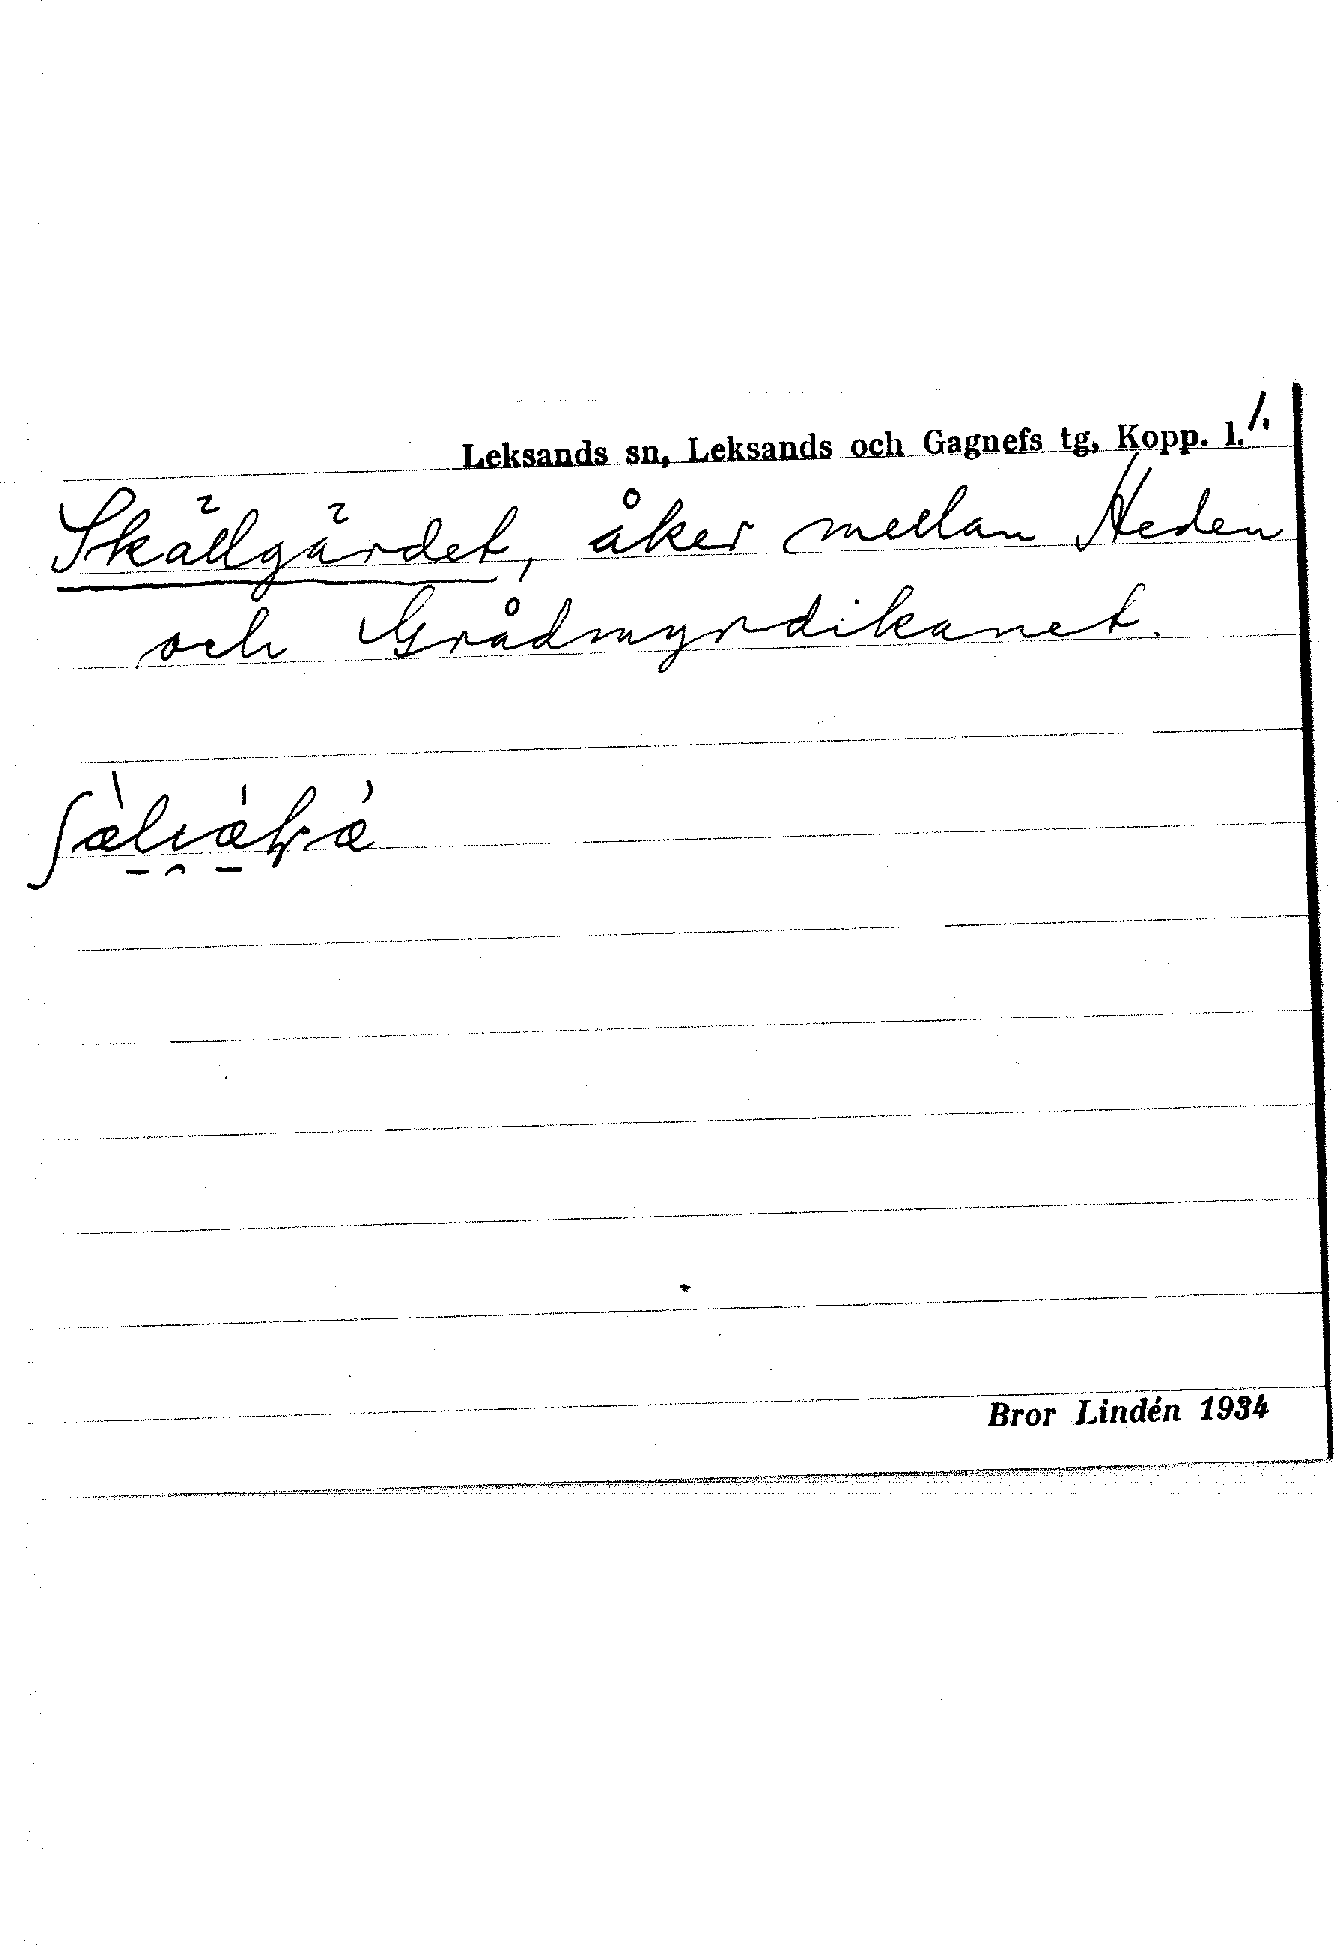 Leksands sn, Leksands och Gagnefs tg, Kopp. l. 1.
Skällgärdet, åker mellan Heden
och Grådmyrdikanet.
Bror Lindén 1934